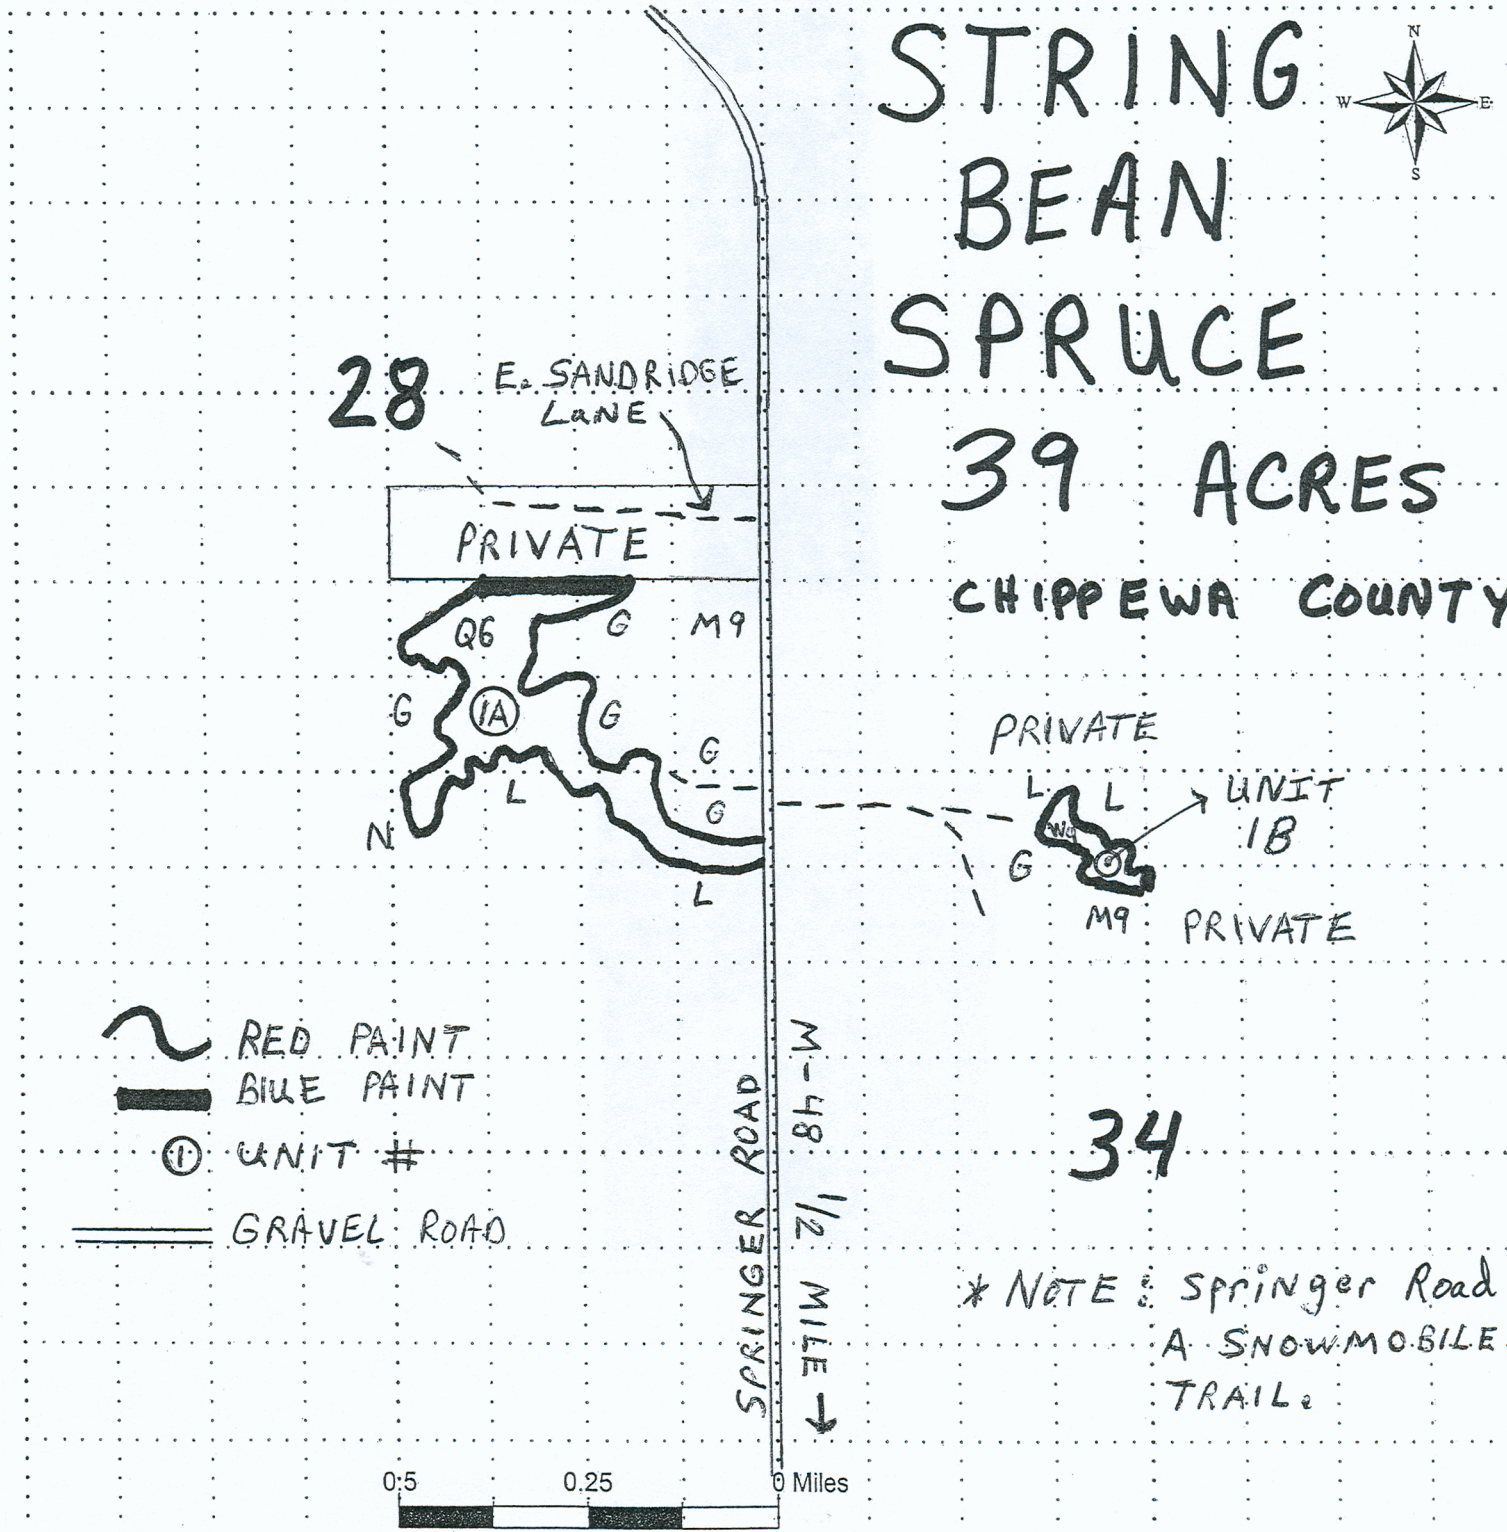 STRING
BEAN
SPRUCE
39 ACRES
CHIPPEWA COUNTY
N
W E
S
28
E. SANDRIDGE
LANE
PRIVATE
Q6
G
M9
G
1A
G
G
L
G
N
L
PRIVATE
L
L
UNIT
1B
G
M9
PRIVATE
RED PAINT
BLUE PAINT
1 UNIT #
GRAVEL ROAD
SPRINGER ROAD
M-48 1/2 MILE →
34
* NOTE: Springer Road
A SNOWMOBILE
TRAIL.
0.5 0.25 0 Miles